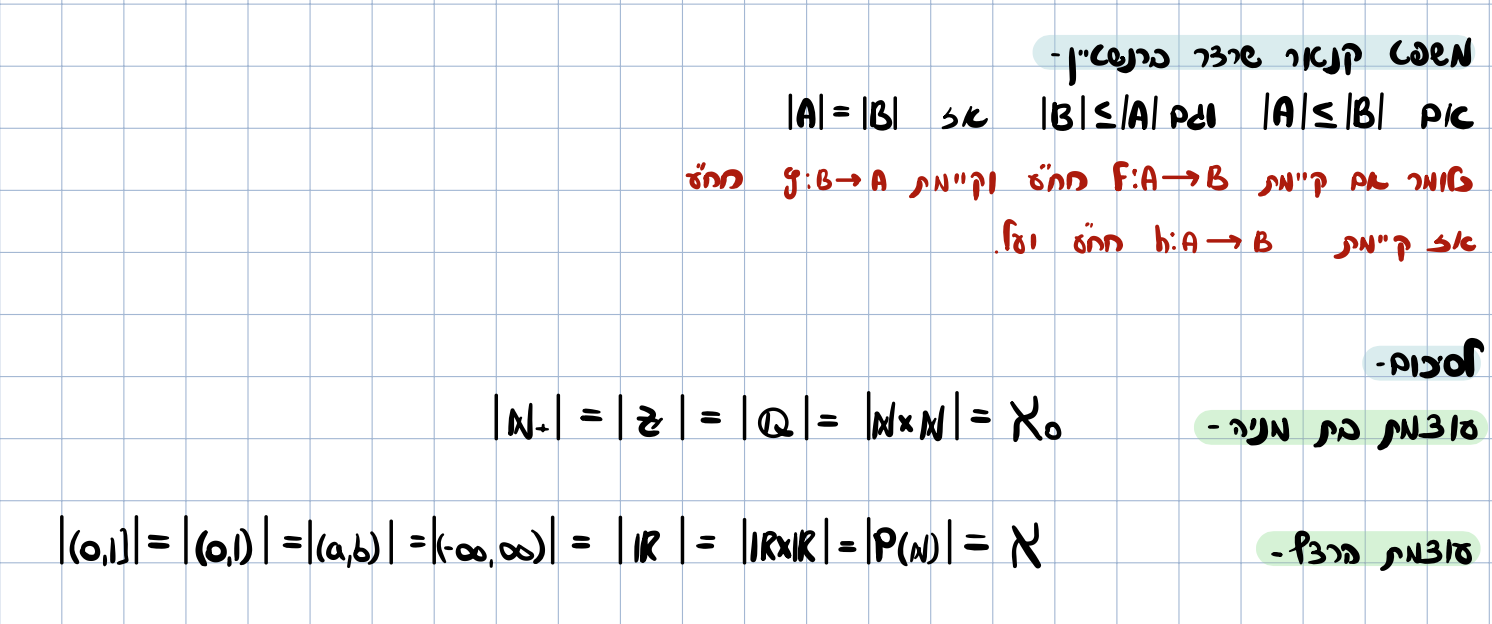 משפט קנאור שרדר ברנשטיין-
אם |A| ≤ |B| וגם |B| ≤ |A| אז |A| = |B|
כלומר אם קיימת f:A→B חח"ע וקיימת g:B→A חח"ע
אז קיימת h:A→B חח"ע ועל.
לסיכום-
עוצמת בת מניה - |ℕ+| = |ℤ| = |ℚ| = |ℕ×ℕ| = ℵ₀
עוצמת הרצף - |(0,1]| = |(0,1)| = |(a,b)| = |(-∞,∞)| = |ℝ| = |ℝ×ℝ| = |P(ℕ)| = ℵ